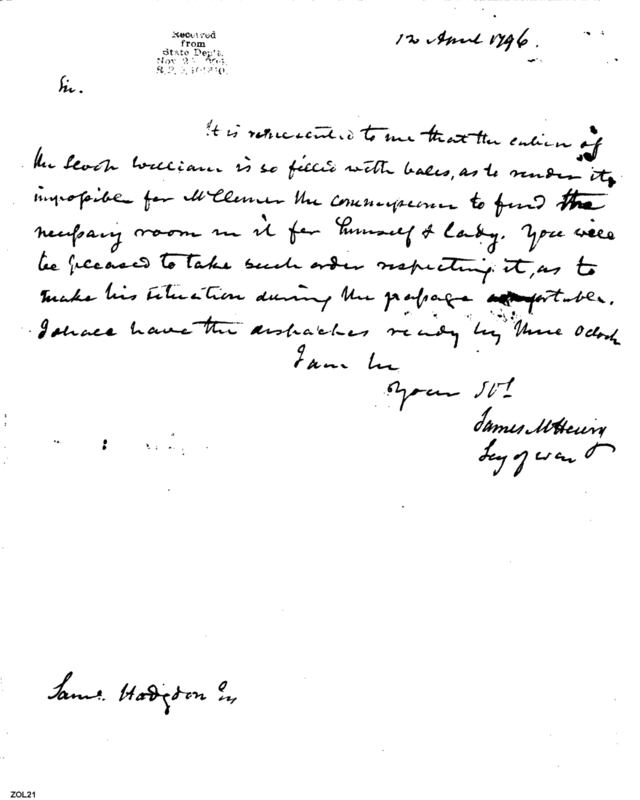 Received
from
State Dep't.
12 April 1796.
Sir.
It is represented to me that the cabin of
the Sloop William is so filled with bales, as to render it
impossible for Mr Clemer the commissioner to find the
necessary room in it for himself & Lady. You will
be pleased to take such order respecting it, as to
make his situation during the passage comfortable.
I shall have the dispatches ready by three O Clock
I am Sir
Your St
James McHenry
Sey of war
Saml. Hodgdon Esq
ZOL21